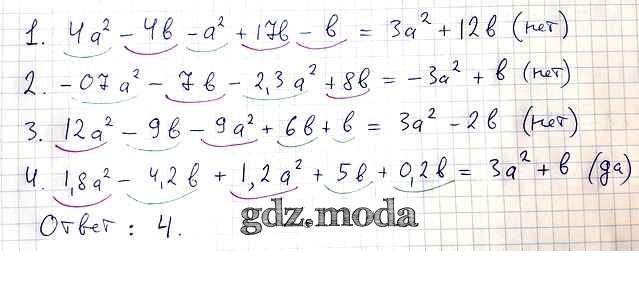 1. 4a² - 4b - a² + 17b - b = 3a² + 12b (нет)
2. -07a² - 7b - 2,3a² + 8b = -3a² + b (нет)
3. 12a² - 9b - 9a² + 6b + b = 3a² - 2b (нет)
4. 1,8a² - 4,2b + 1,2a² + 5b + 0,2b = 3a² + b (да)
Ответ : 4.
gdz.moda